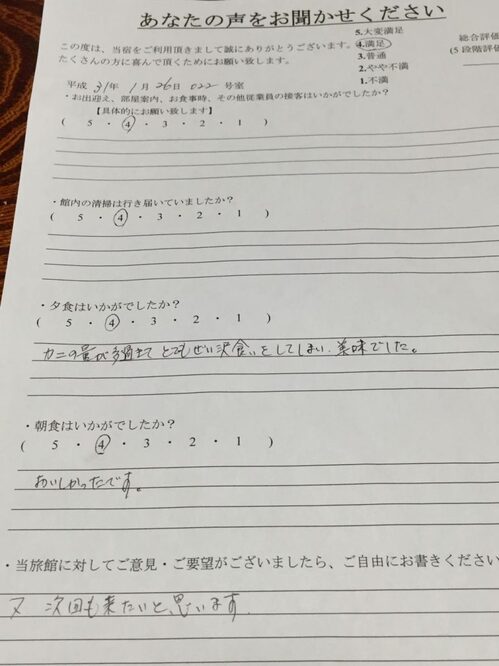 あなたの声をお聞かせください
この度は、当宿をご利用頂きまして誠にありがとうございます。
たくさんの方に喜んで頂くためにお願い致します。
5.大変満足
4.満足
3.普通
2.やや不満
1.不満
総合評価
(5 段階評価
平成 31年 1月 26日 022 号室
・お出迎え、部屋案内、お食事時、その他従業員の接客はいかがでしたか？
【具体的にお願い致します】
( 5 ・ 4 ・ 3 ・ 2 ・ 1 )
・館内の清掃は行き届いていましたか？
( 5 ・ 4 ・ 3 ・ 2 ・ 1 )
・夕食はいかがでしたか？
( 5 ・ 4 ・ 3 ・ 2 ・ 1 )
カニの量が多過ぎて とてもぜい沢食いをしてしまい、美味でした。
・朝食はいかがでしたか？
( 5 ・ 4 ・ 3 ・ 2 ・ 1 )
おいしかったです。
・当旅館に対してご意見・ご要望がございましたら、ご自由にお書きください
又 次回も来たいと思います。